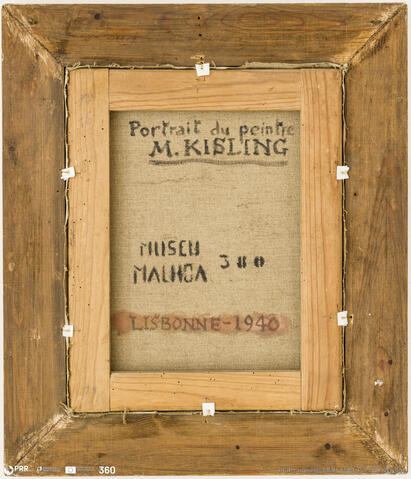 Portrait du peintre
M. KISLING
MUSEU 380
MALHOA
LISBONNE-1940
PRR
360